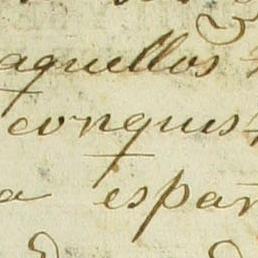 aquellos
conquist
a españ